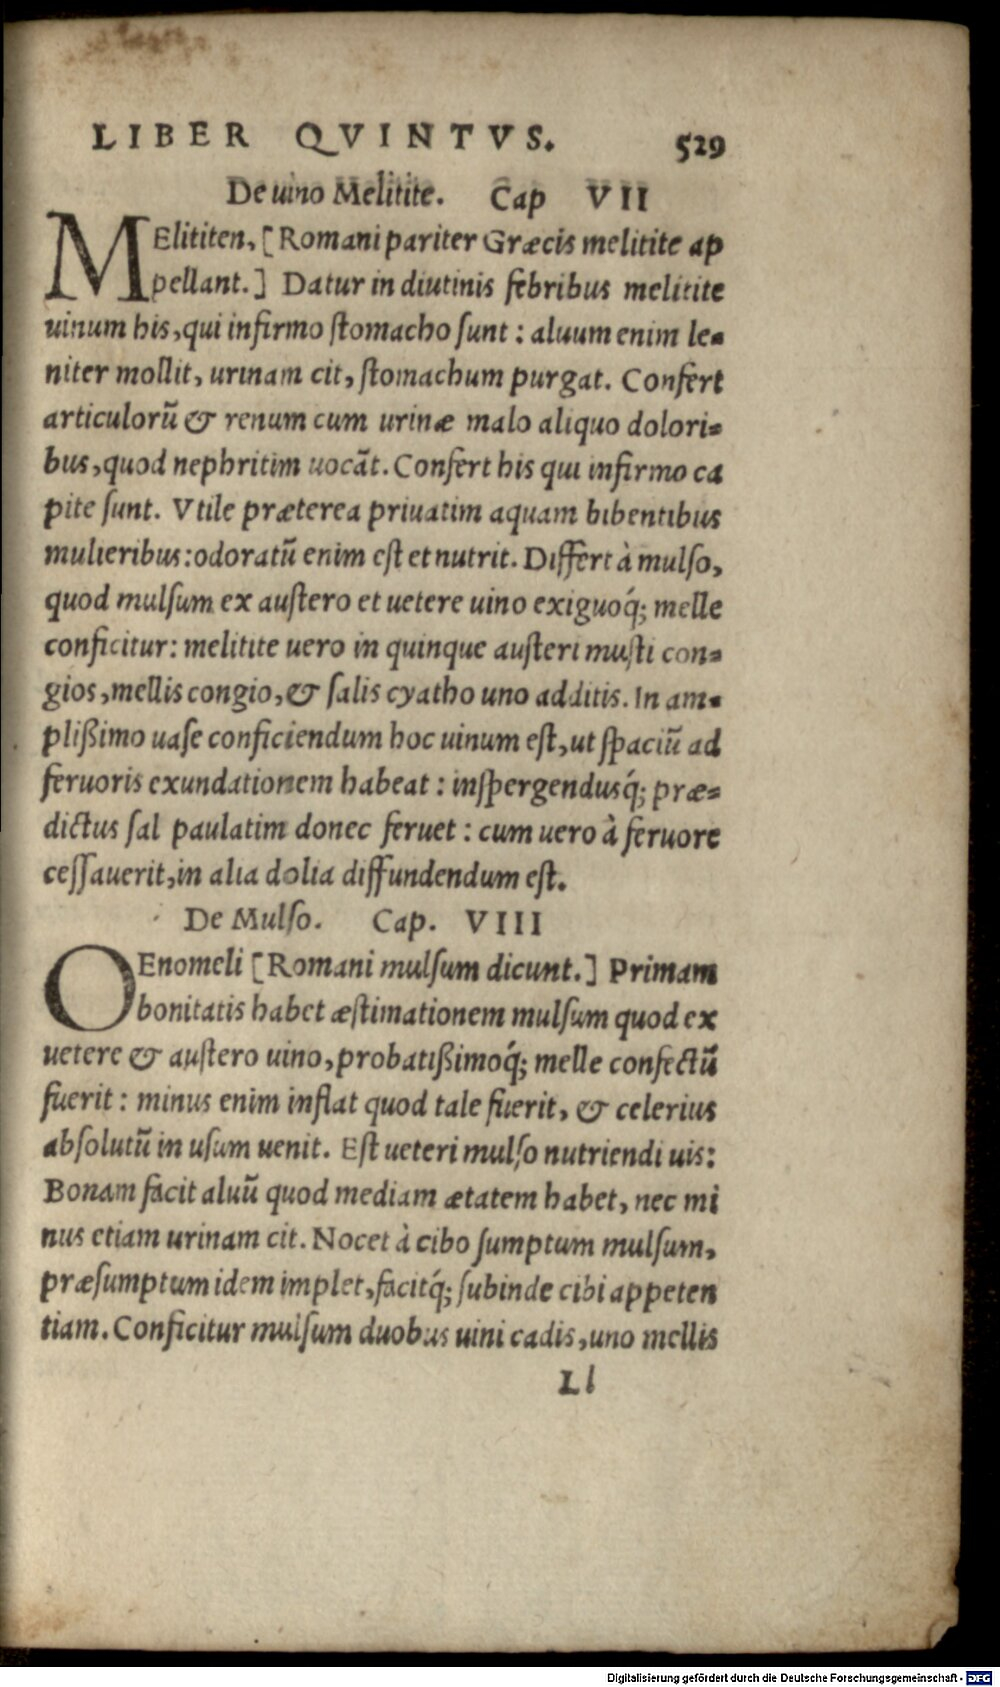 LIBER QVINTVS. 529
De uino Melitite. Cap VII
MElititen, [Romani pariter Græcis melitite ap
pellant.] Datur in diutinis febribus melitite
uinum his, qui infirmo ſtomacho ſunt : aluum enim le-
niter mollit, urinam cit, ſtomachum purgat. Confert
articulorũ & renum cum urinæ malo aliquo dolori-
bus, quod nephritim uocãt. Confert his qui infirmo ca
pite ſunt. Vtile præterea priuatim aquam bibentibus
mulieribus: odoratũ enim eſt et nutrit. Differt à mulſo,
quod mulſum ex auſtero et uetere uino exiguoq́; melle
conficitur: melitite uero in quinque auſteri muſti con-
gios, mellis congio, & ſalis cyatho uno additis. In am-
plißimo uaſe conficiendum hoc uinum eſt, ut ſpaciũ ad
feruoris exundationem habeat : inſpergendusq́; præ-
dictus ſal paulatim donec feruet : cum uero à feruore
ceſſauerit, in alia dolia diffundendum eſt.
De Mulſo. Cap. VIII
OEnomeli [Romani mulſum dicunt.] Primam
bonitatis habet æſtimationem mulſum quod ex
uetere & auſtero uino, probatißimoq́; melle confectũ
fuerit : minus enim inflat quod tale fuerit, & celerius
abſolutũ in uſum uenit. Eſt ueteri mulſo nutriendi uis:
Bonam facit aluũ quod mediam ætatem habet, nec mi
nus etiam urinam cit. Nocet à cibo ſumptum mulſum,
præſumptum idem implet, facitq́; ſubinde cibi appeten
tiam. Conficitur mulſum duobus uini cadis, uno mellis
Ll
Digitalisierung gefördert durch die Deutsche Forschungsgemeinschaft - DFG